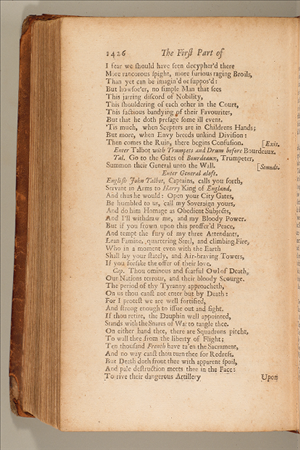 1426 The First Part of
I fear we should have seen decypher'd there
More rancorous spight, more furious raging Broils,
Than yet can be imagin'd or suppos'd:
But howsoe'er, no simple Man that sees
This jarring discord of Nobility,
This shouldering of each other in the Court,
This factious bandying of their Favourites,
But that he doth presage some ill event.
'Tis much, when Scepters are in Childrens Hands;
But more, when Envy breeds unkind Division:
Then comes the Ruin, there begins Confusion. [Exit.
Enter Talbot with Trumpets and Drum before Bourdeaux.
Tal. Go to the Gates of Bourdeaux, Trumpeter,
Summon their General unto the Wall. [Sounds.
Enter General aloft.
English John Talbot, Captains, calls you forth,
Servant in Arms to Harry King of England,
And thus he would: Open your City Gates,
Be humbled to us, call my Sovereign yours,
And do him Homage as Obedient Subjects,
And I'll withdraw me, and my Bloody Power.
But if you frown upon this proffer'd Peace,
You tempt the fury of my three Attendants,
Lean Famine, quartering Steel, and climbing Fire,
Who in a moment even with the Earth
Shall lay your stately, and Air-braving Towers,
If you forsake the offer of their love.
Cap. Thou ominous and fearful Owl of Death,
Our Nations terrour, and their bloody Scourge.
The period of thy Tyranny approacheth,
On us thou canst not enter but by Death:
For I protest we are well fortified,
And strong enough to issue out and fight.
If thou retire, the Dauphin well appointed,
Stands with the Snares of War to tangle thee.
On either hand thee, there are Squadrons pitcht,
To wall thee from the liberty of Flight;
And no way canst thou turn thee for Redress,
But Death doth front thee with apparent spoil,
And pale destruction meets thee in the Face:
Ten thousand French have ta'en the Sacrament,
To rive their dangerous Artillery Upon